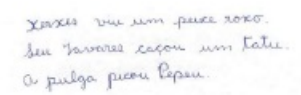 Xerxes viu um peixe roxo.
Seu Tavares caçou um tatu.
A pulga picou Pepeu.